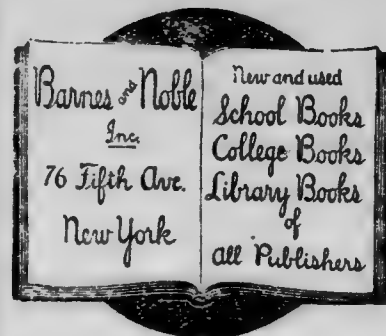 Barnes and Noble
Inc.
76 Fifth Ave.
New York
New and used
School Books
College Books
Library Books
of
All Publishers